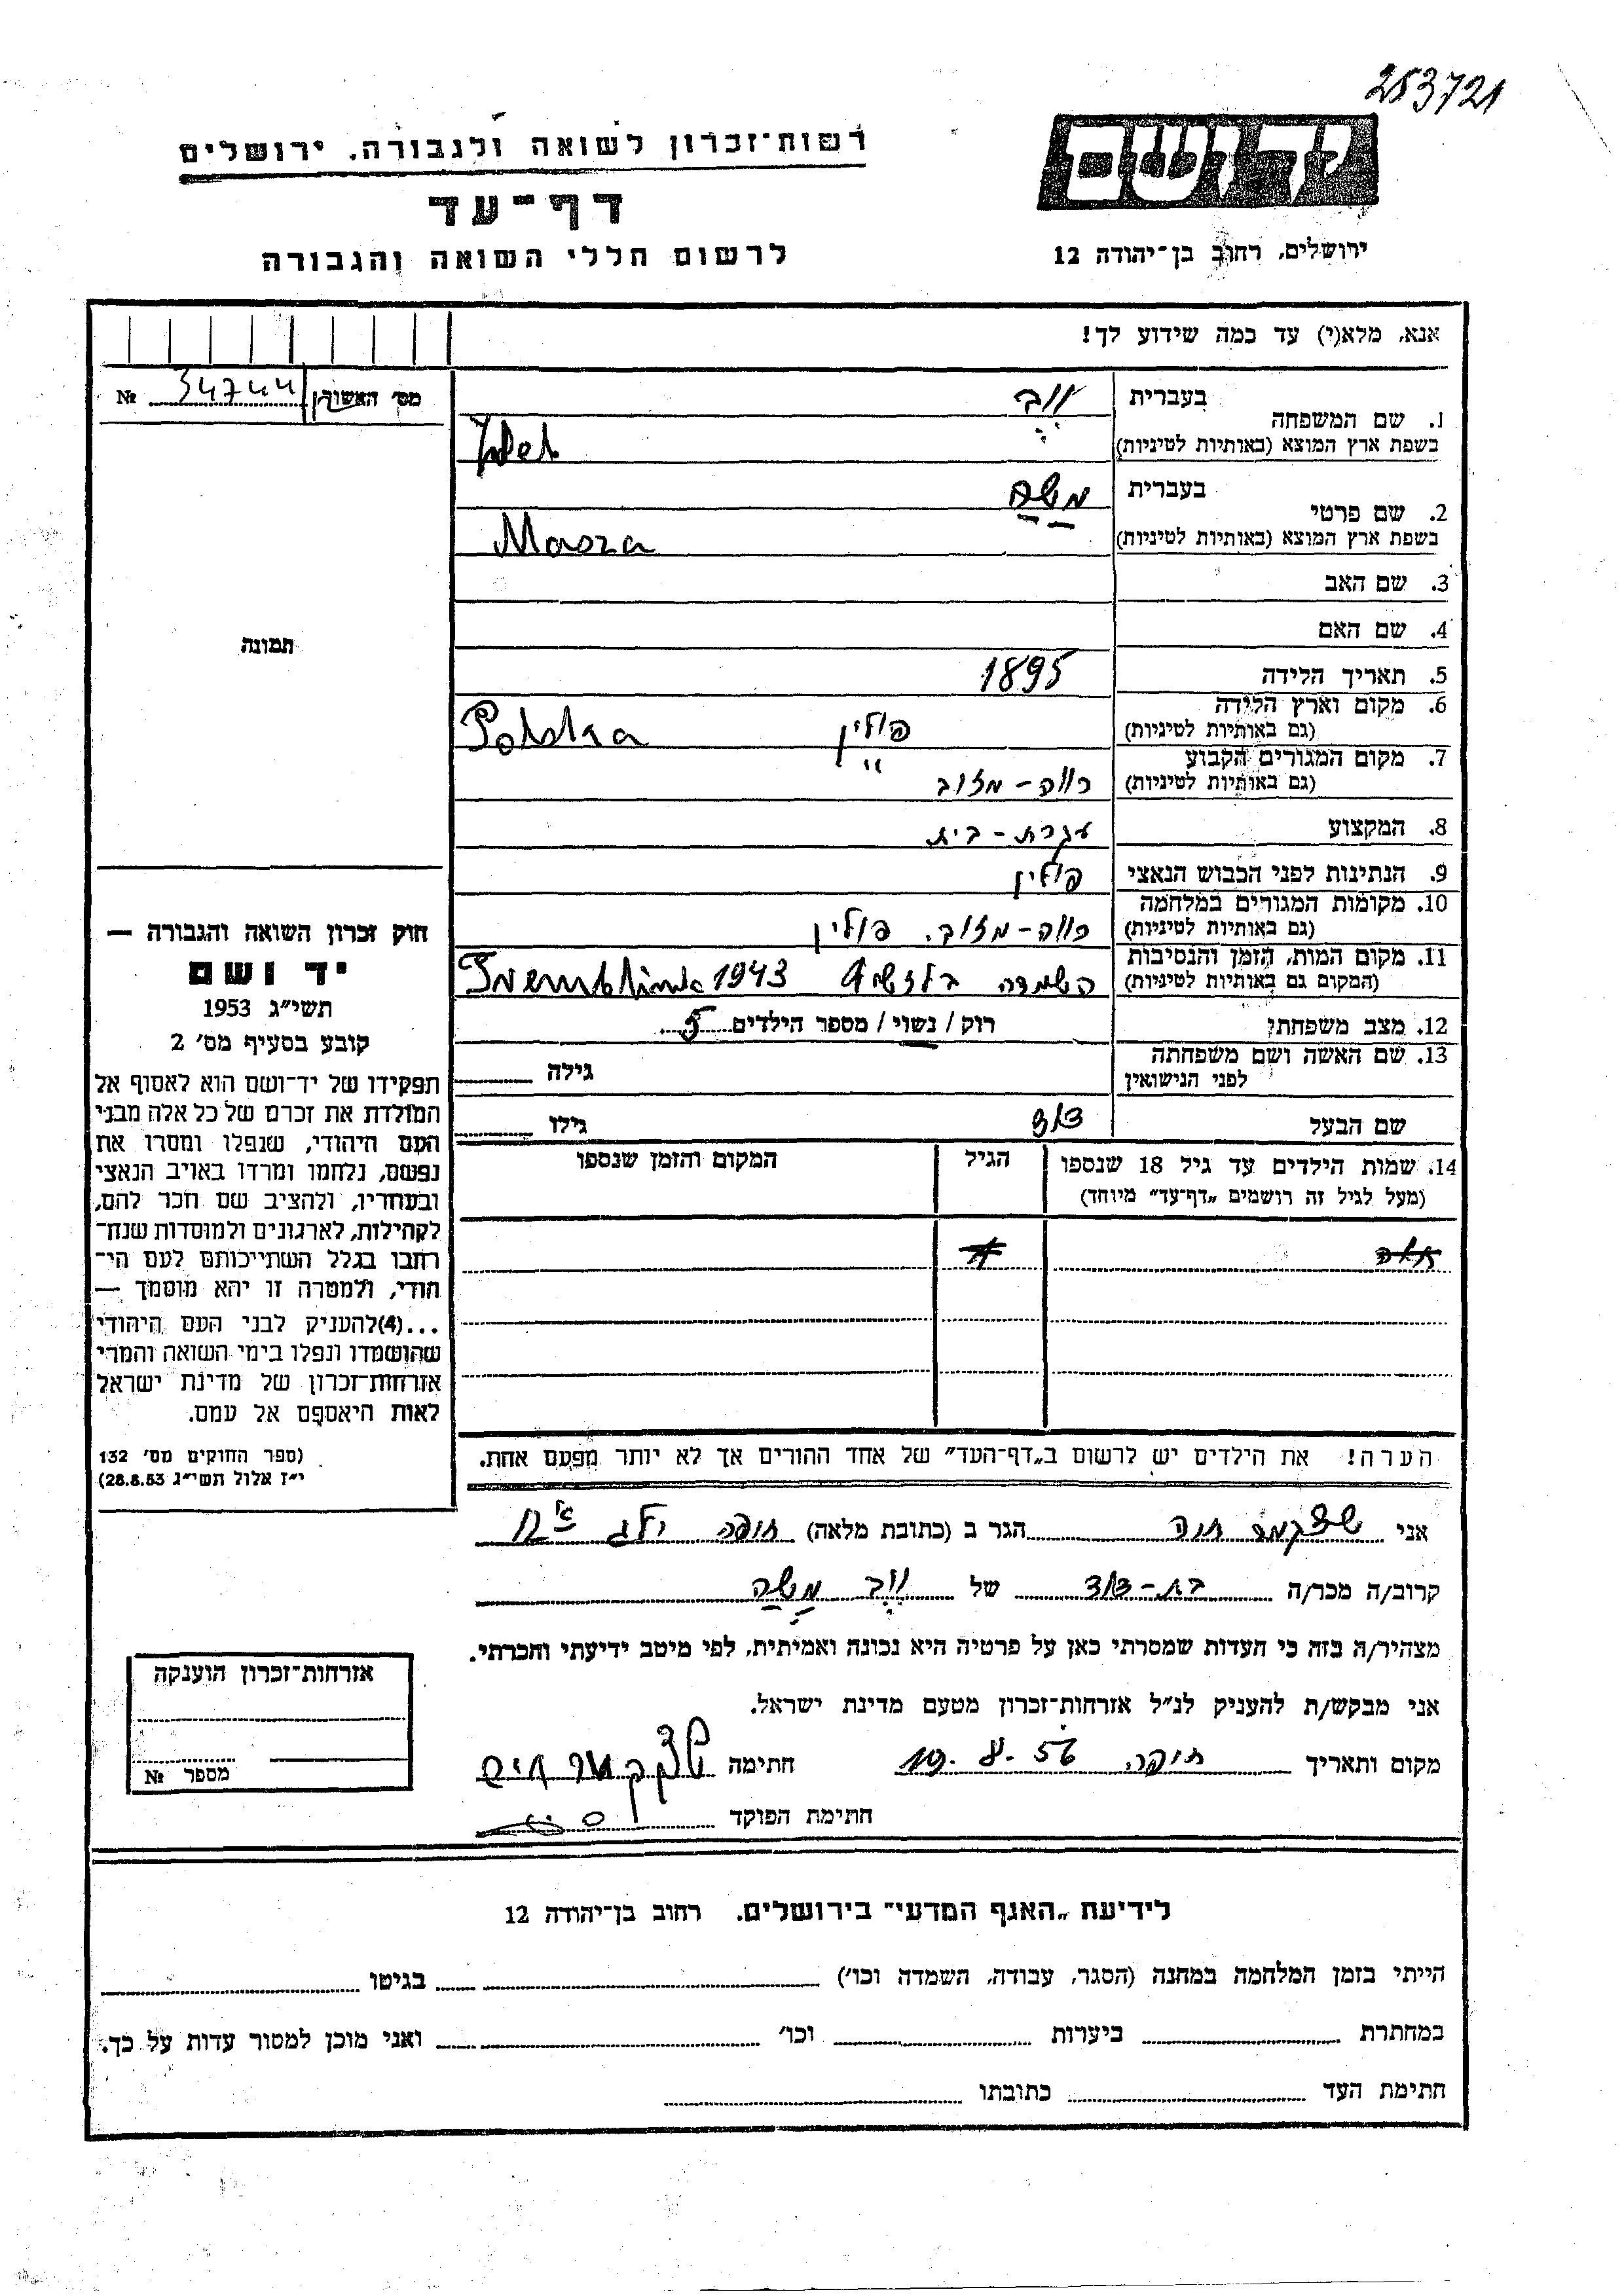 253721
רשות־זכרון לשואה ולגבורה. ירושלים
דף־עד
לרשום חללי השואה והגבורה
יד ושם
ירושלים, רחוב בן־יהודה 12
אנא, מלא(י) עד כמה שידוע לך!
מס׳ האשורון 34744 №
1. שם המשפחה
בעברית
בשפת ארץ המוצא (באותיות לטיניות)
2. שם פרטי
בעברית משה
בשפת ארץ המוצא (באותיות לטיניות) Masza
3. שם האב
4. שם האם
תמונה
5. תאריך הלידה 1895
6. מקום וארץ הלידה
(גם באותיות לטיניות) פולין Polska
7. מקום המגורים הקבוע
(גם באותיות לטיניות) רווה-מזוב
8. המקצוע עקרת-בית
9. הנתינות לפני הכבוש הנאצי פולין
10. מקומות המגורים במלחמה
(גם באותיות לטיניות) רווה-מזוב. פולין
11. מקום המות, הזמן והנסיבות
(המקום גם באותיות לטיניות) השמדה 1943
12. מצב משפחתי רוק / נשוי / מספר הילדים 5
13. שם האשה ושם משפחתה
לפני הנישואין גילה
שם הבעל גילו
14. שמות הילדים עד גיל 18 שנספו
(מעל לגיל זה רושמים „דף־עד״ מיוחד)
הגיל
המקום והזמן שנספו
הערה! את הילדים יש לרשום ב„דף־העד״ של אחד ההורים אך לא יותר מפעם אחת.
חוק זכרון השואה והגבורה —
יד ושם
תשי״ג 1953
קובע בסעיף מס׳ 2
תפקידו של יד־ושם הוא לאסוף אל
המולדת את זכרם של כל אלה מבני
העם היהודי, שנפלו ומסרו את
נפשם, נלחמו ומרדו באויב הנאצי
ובעוזריו, ולהציב שם וזכר להם,
לקהילות, לארגונים ולמוסדות שנח־
רבו בגלל השתייכותם לעם הי־
הודי, ולמטרה זו יהא מוסמך —
...(4)להעניק לבני העם היהודי
שהושמדו ונפלו בימי השואה והמרי
אזרחות־זכרון של מדינת ישראל
לאות היאספם אל עמם.
(ספר החוקים מס׳ 132
י״ז אלול תשי״ג 28.8.53)
אני חיה הגר ב (כתובת מלאה) חיפה
קרוב/ה מכר/ה של משה
מצהיר/ה בזה כי העדות שמסרתי כאן על פרטיה היא נכונה ואמיתית, לפי מיטב ידיעתי והכרתי.
אני מבקש/ת להעניק לנ״ל אזרחות־זכרון מטעם מדינת ישראל.
מקום ותאריך חיפה 19.8.56 חתימה
חתימת הפוקד
אזרחות־זכרון הוענקה
מספר №
לידיעת „האגף המדעי״ בירושלים. רחוב בן־יהודה 12
הייתי בזמן המלחמה במחנה (הסגר, עבודה, השמדה וכו׳) בגיטו
במחתרת ביערות וכו׳ ואני מוכן למסור עדות על כך.
חתימת העד כתובתו